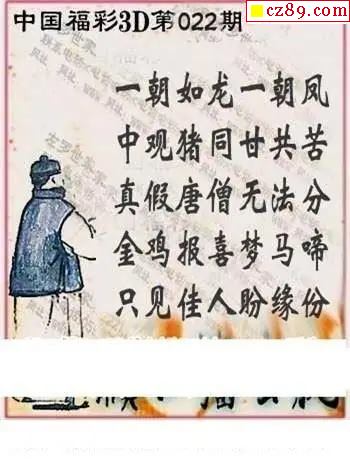 cz89.com
中国福彩3D第022期
一朝如龙一朝凤
中观猪同甘共苦
真假唐僧无法分
金鸡报喜梦马啼
只见佳人盼缘份